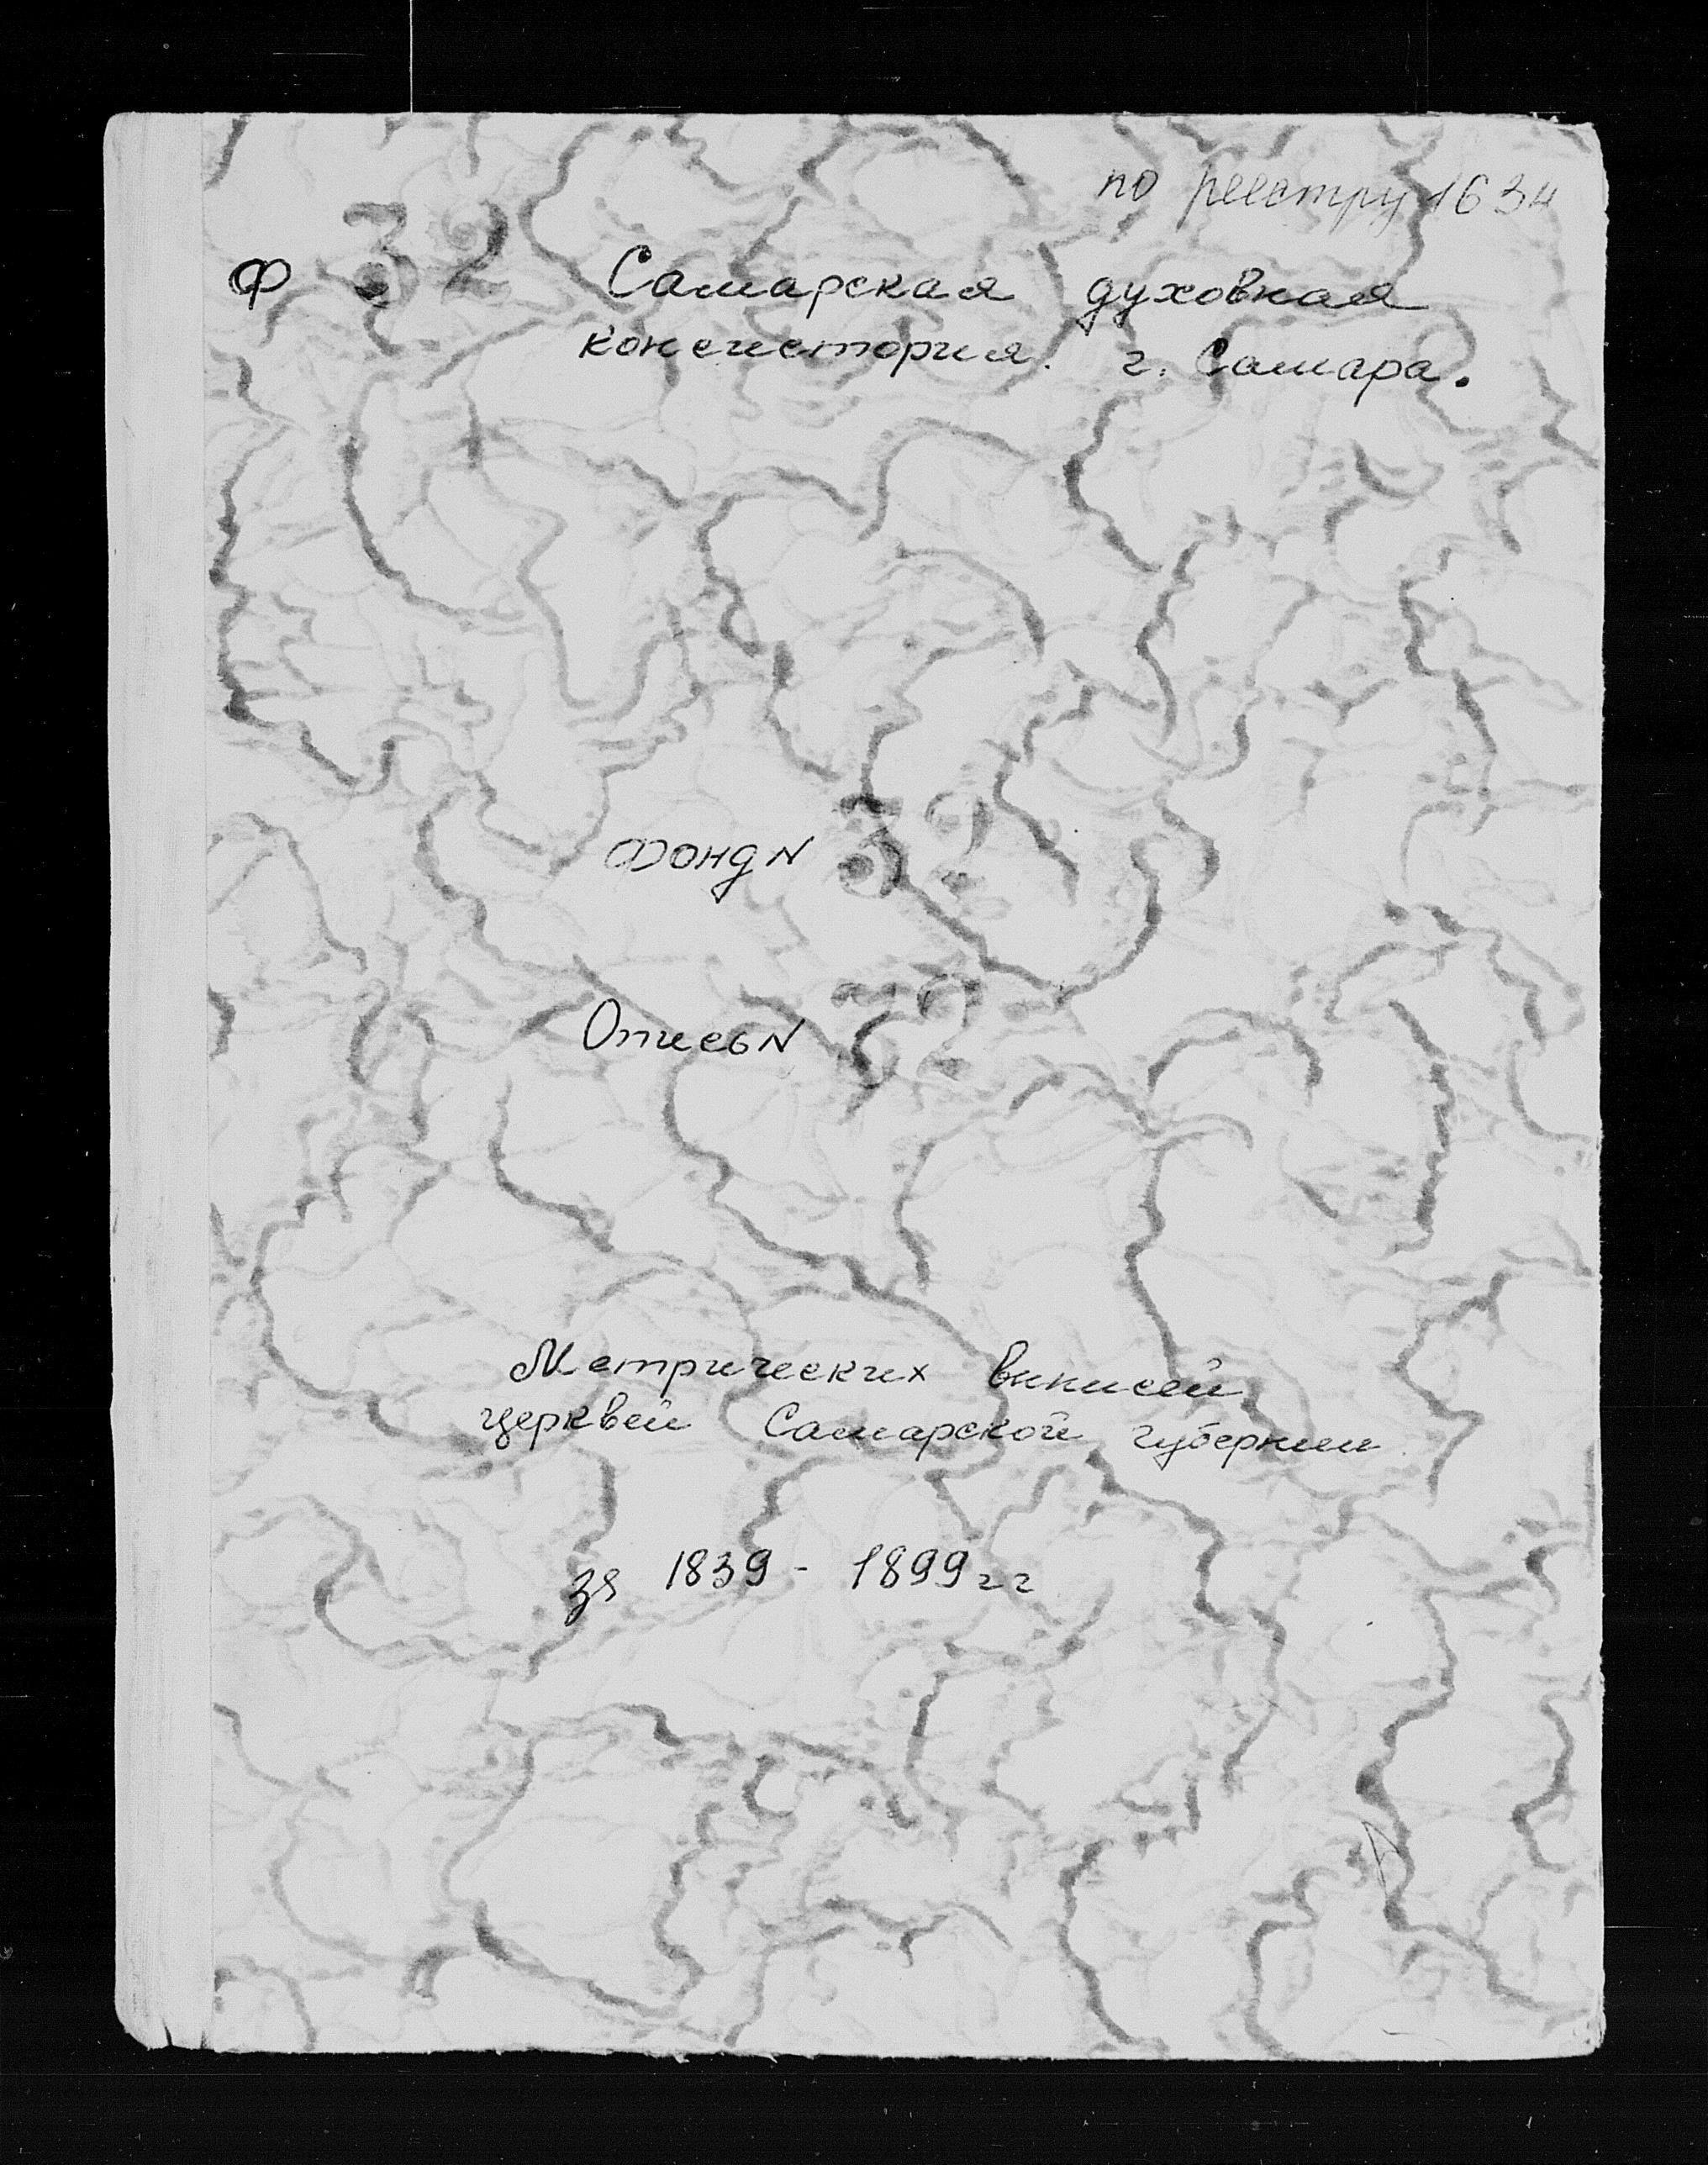 по реестру 1634
Ф 32 Самарская духовная
консистория. г. Самара.
Фонд N 32
Опись N
Метрических выписей
церквей Самарской губернии
за 1839 - 1899 гг